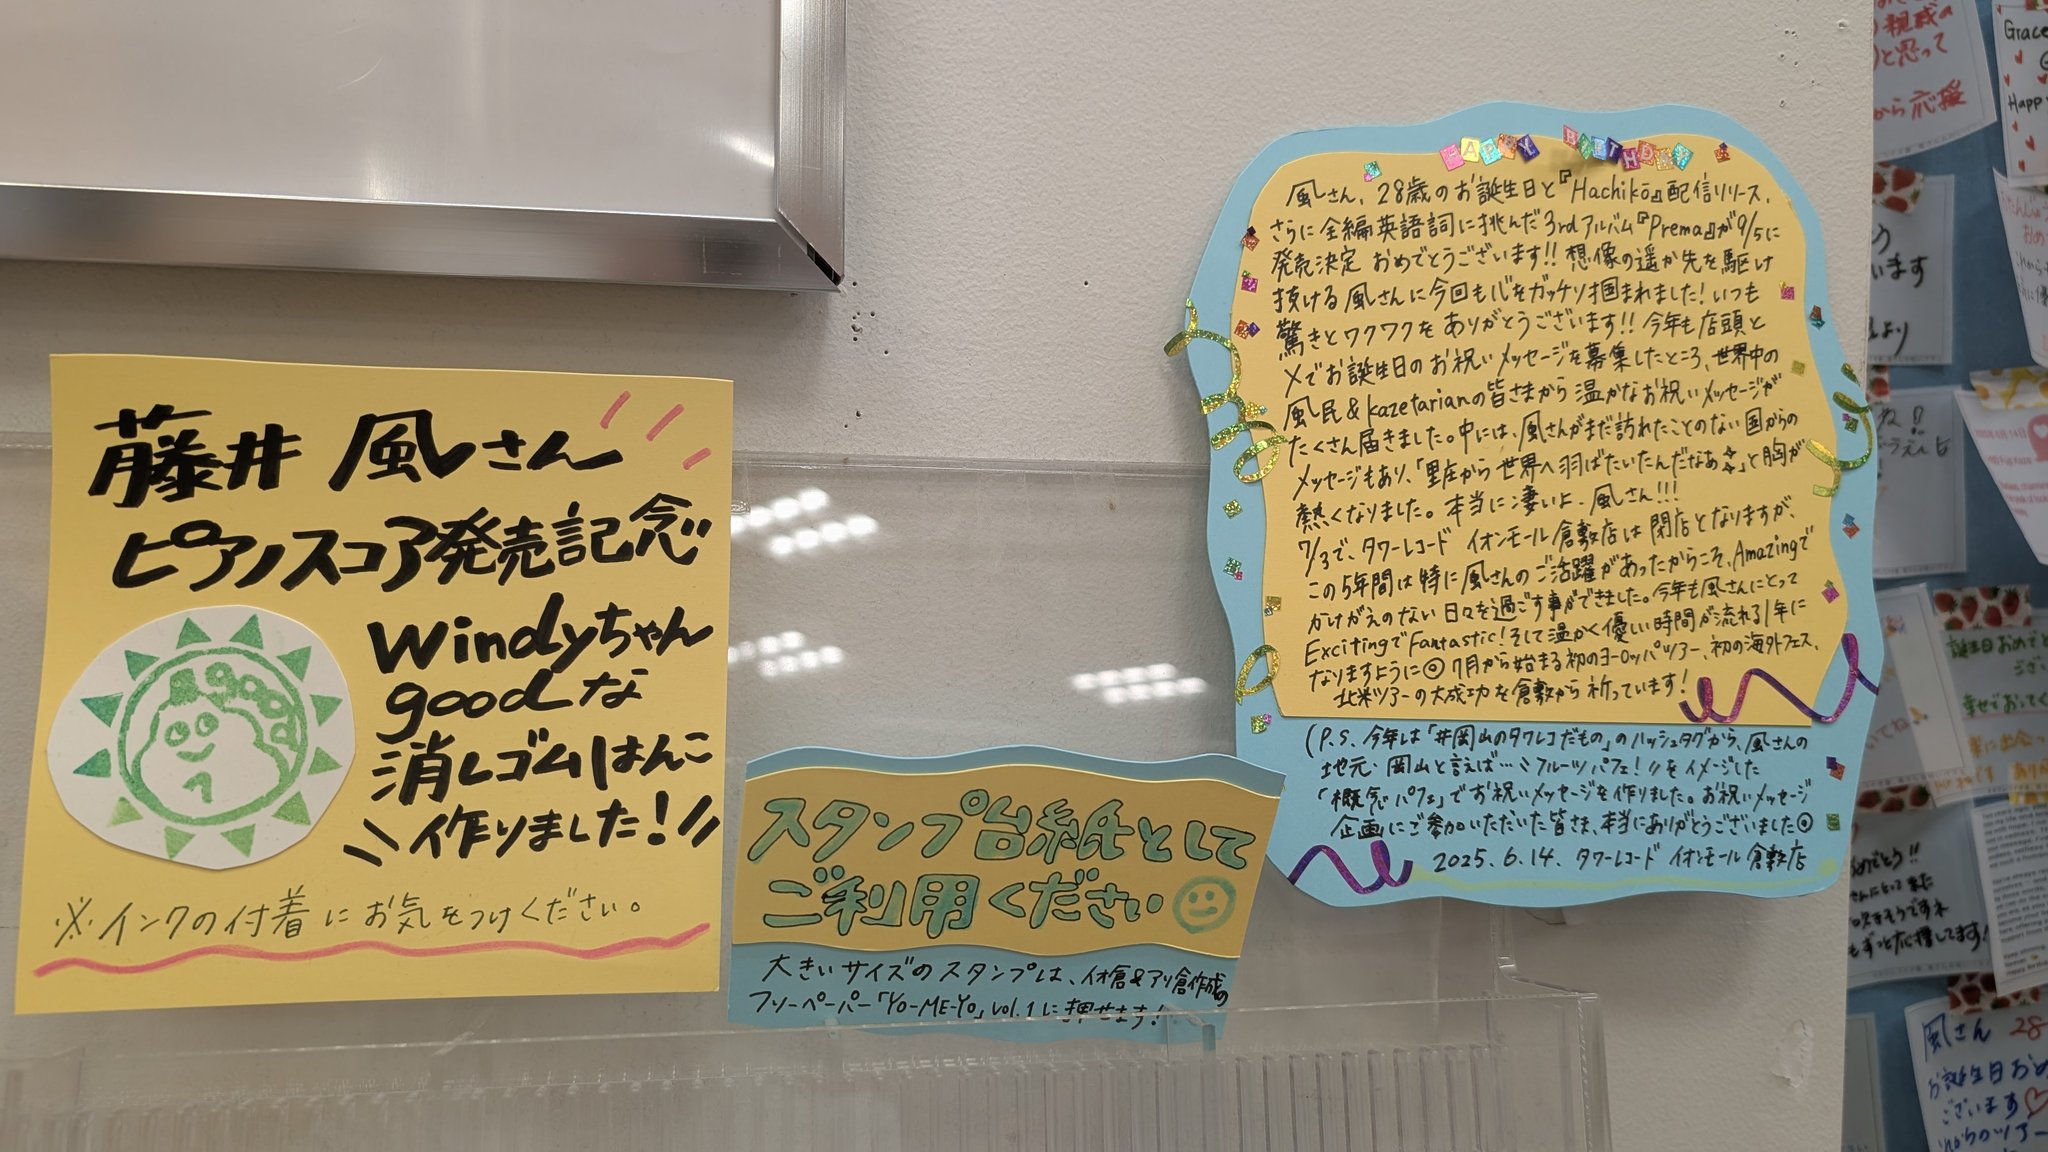 藤井 風さん
ピアノスコア発売記念
windyちゃん
goodな
消しゴムはんこ
作りました!
※インクの付着にお気をつけください。
スタンプ台紙として
ご利用ください
大きいサイズのスタンプは、イオ倉&アリ倉作成の
フリーペーパー「YO-ME-YO」vol.1に押せます!
HAPPY BIRTHDAY
風さん、28歳のお誕生日と『Hachikō』配信リリース、
さらに全編英語詞に挑んだ3rdアルバム『Prema』が9/5に
発売決定 おめでとうございます!! 想像の遥か先を駆け
抜ける風さんに今回も心をガッチリ掴まれました! いつも
驚きとワクワクをありがとうございます!! 今年も店頭と
Xでお誕生日のお祝いメッセージを募集したところ、世界中の
風民&kazetarianの皆さまから温かなお祝いメッセージが
たくさん届きました。中には、風さんがまだ訪れたことのない国からの
メッセージもあり、「里庄から世界へ羽ばたいたんだなあ」と胸が
熱くなりました。本当に凄いよ、風さん!!!
7/3で、タワーレコード イオンモール倉敷店は閉店となりますが、
この5年間は特に風さんのご活躍があったからこそ、Amazingで
かけがえのない日々を過ごす事ができました。今年も風さんにとって
ExcitingでFantastic! そして温かく優しい時間が流れる1年に
なりますように 7月から始まる初のヨーロッパツアー、初の海外フェス、
北米ツアーの大成功を倉敷から祈っています!
(P.S. 今年は「#岡山のタワレコだもの」のハッシュタグから、風さんの
地元・岡山と言えば…フルーツパフェ!をイメージした
「概念パフェ」でお祝いメッセージを作りました。お祝いメッセージ
企画にご参加いただいた皆さま、本当にありがとうございました
2025.6.14. タワーレコード イオンモール倉敷店
Grace
から応援
風さん 28
お誕生日おめ
ございます